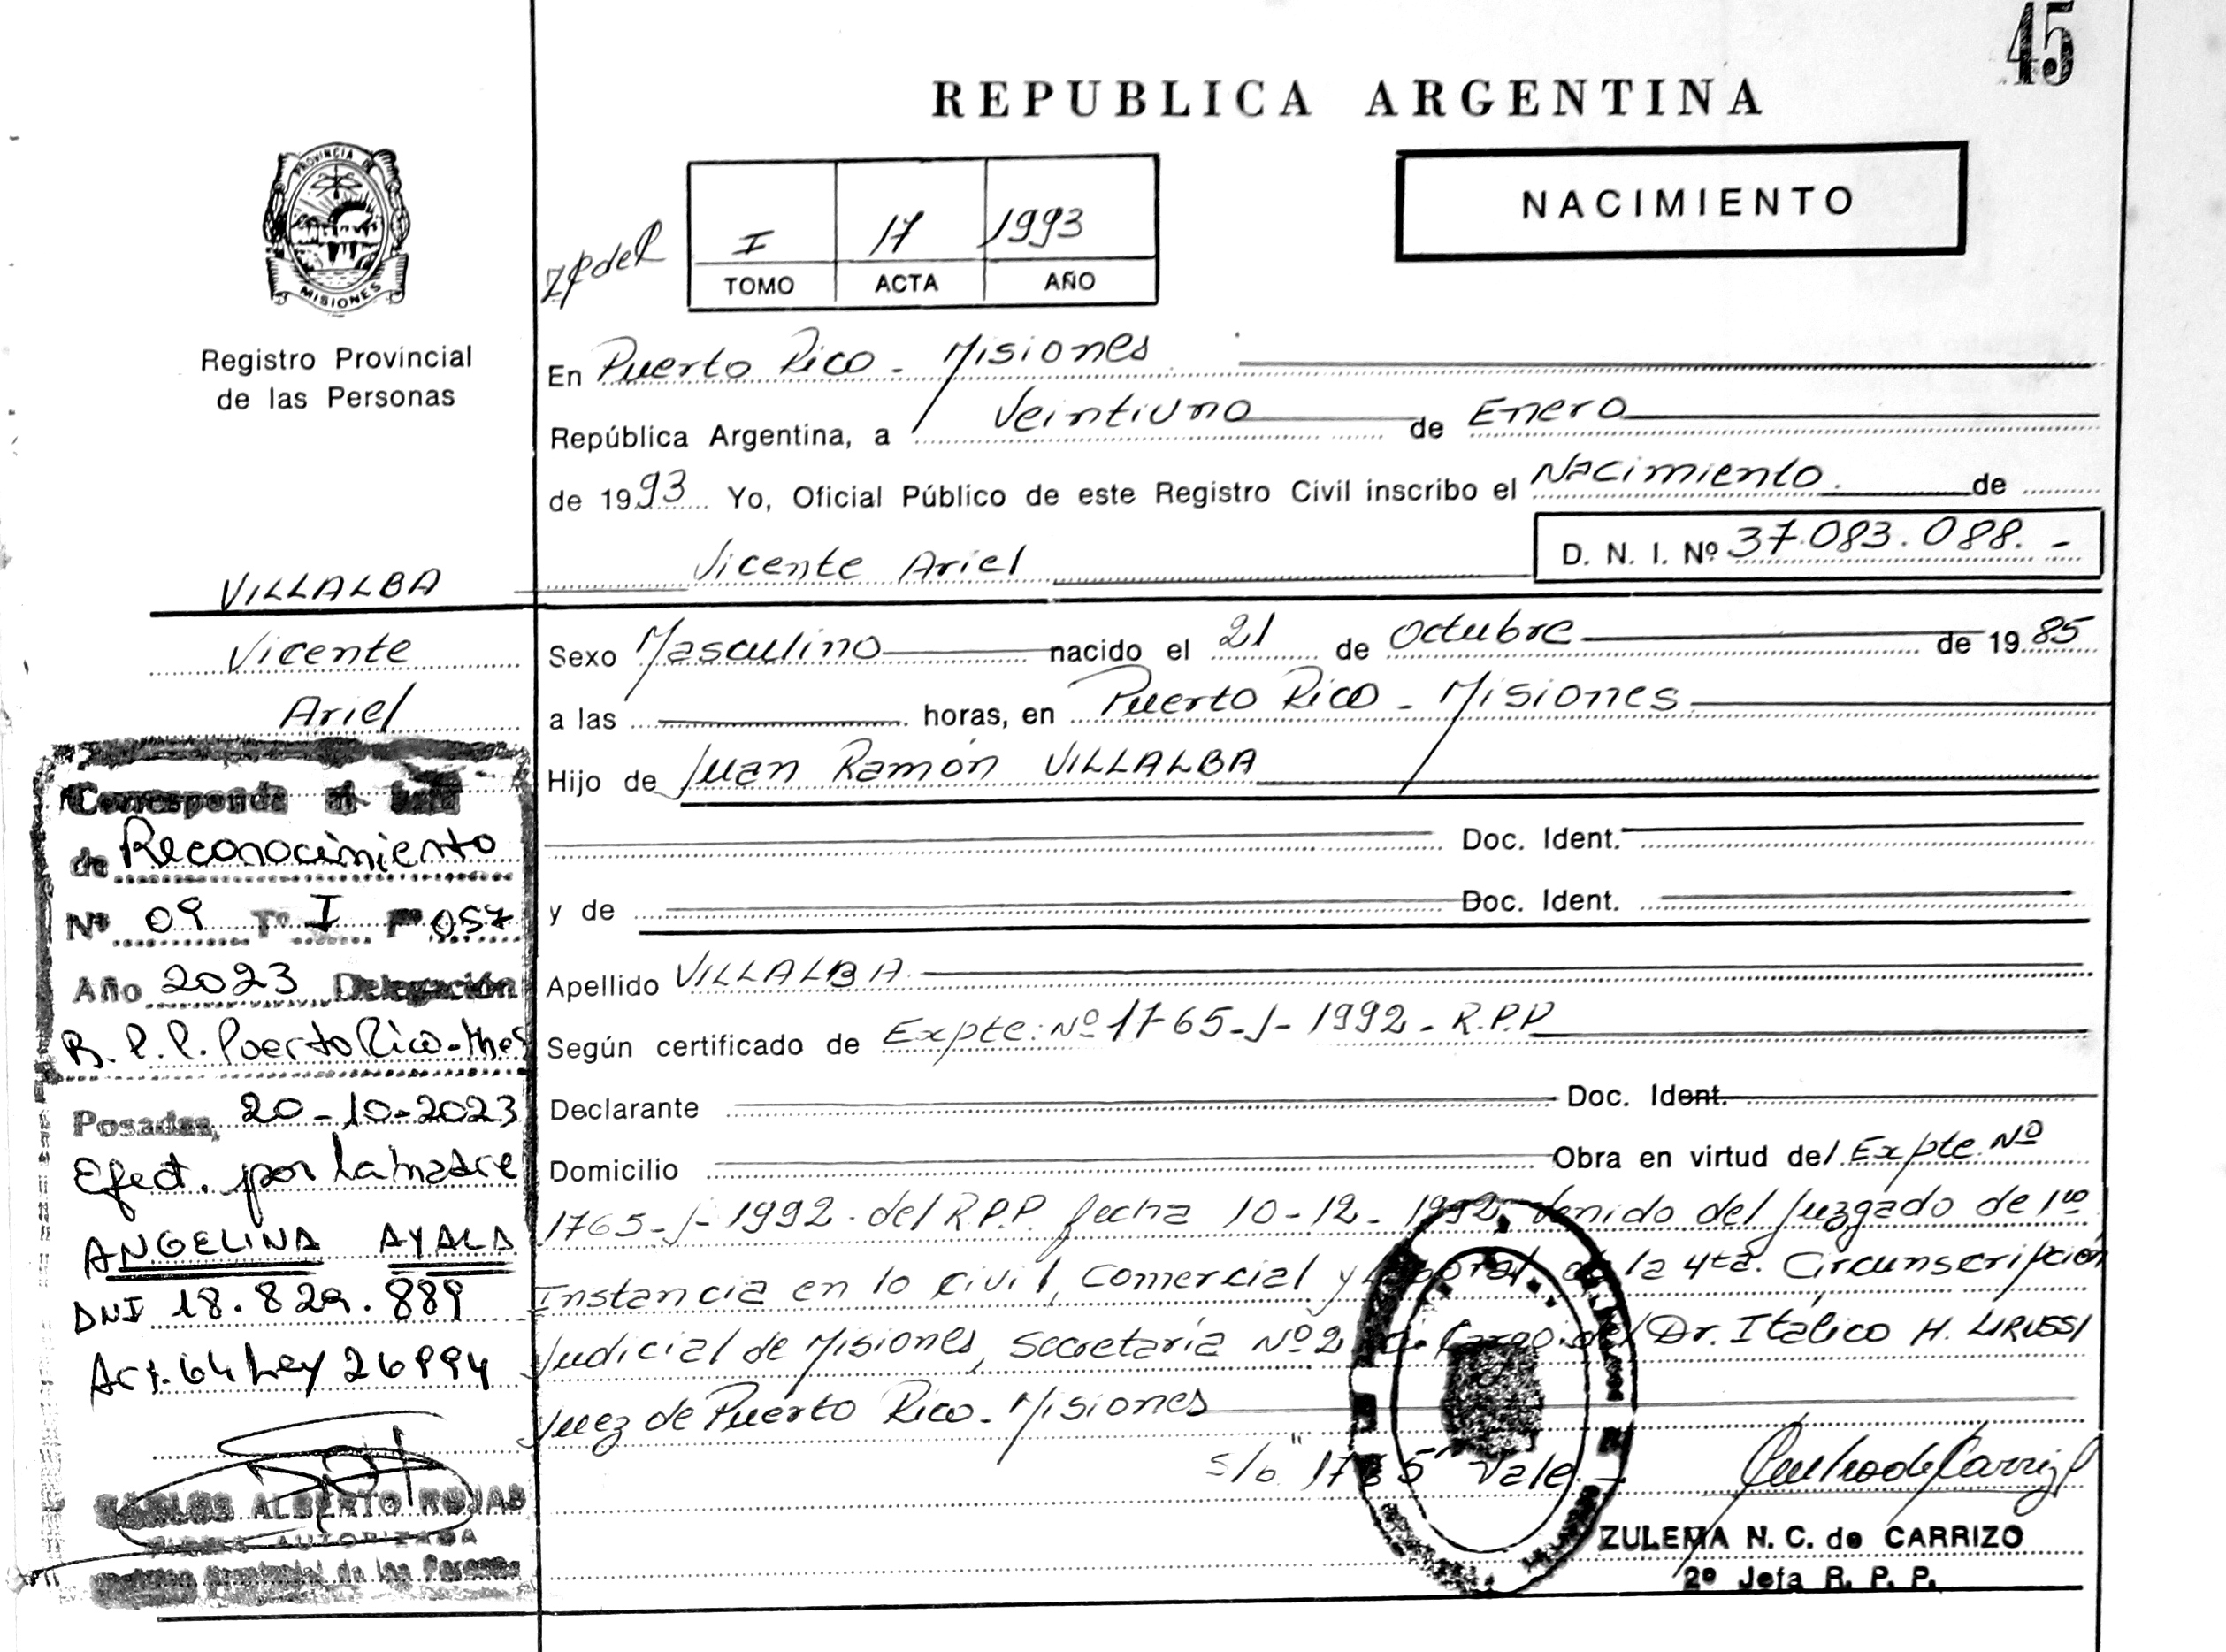 45
REPUBLICA ARGENTINA
PROVINCIA DE
MISIONES
Registro Provincial
de las Personas
I 17 1993
TOMO ACTA AÑO
NACIMIENTO
En Puerto Rico - Misiones
República Argentina, a Veintiuno de Enero
de 1993 Yo, Oficial Público de este Registro Civil inscribo el Nacimiento. de
Vicente Ariel D. N. I. Nº 37.083.088. -
VILLALBA
Vicente
Ariel
Sexo Masculino nacido el 21 de Octubre de 1985
a las horas, en Puerto Rico - Misiones
Hijo de Juan Ramón VILLALBA
Doc. Ident.
y de Doc. Ident.
Apellido VILLALBA
Según certificado de Expte: Nº 1765-J-1992 - R.P.P
Declarante Doc. Ident.
Domicilio Obra en virtud del Expte. Nº
1765-J-1992. del R.P.P. fecha 10-12-1992 venido del Juzgado de 1ra
Instancia en lo Civil, Comercial y Laboral de la 4ta. Circunscripción
Judicial de Misiones, Secretaria Nº 2 a cargo del Dr. Itálico H. LIRUSSI
Juez de Puerto Rico - Misiones
s/b "1765" Vale. -
ZULEMA N. C. de CARRIZO
2º Jefa R. P. P.
Corresponde al
de Reconocimiento
Nº 09 Tº I Fº 057
Año 2023 Delegación
R.P.P. Puerto Rico-Mnes
Posadas, 20-10-2023
Efect. por la madre
ANGELINA AYALA
DNI 18.829.889
Art. 64 Ley 26994
CARLOS ALBERTO ROJAS
FIRMA AUTORIZADA
Provincial de las Personas